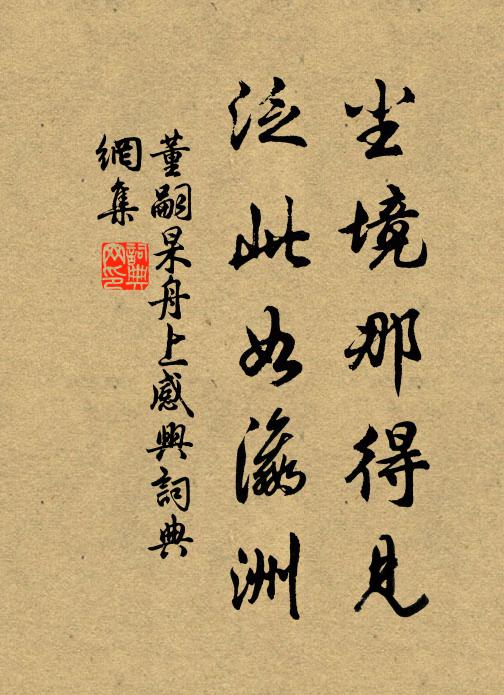 尘境那得見
泛此如瀛洲
董嗣杲舟上感興詞典
網集
詞典
网印